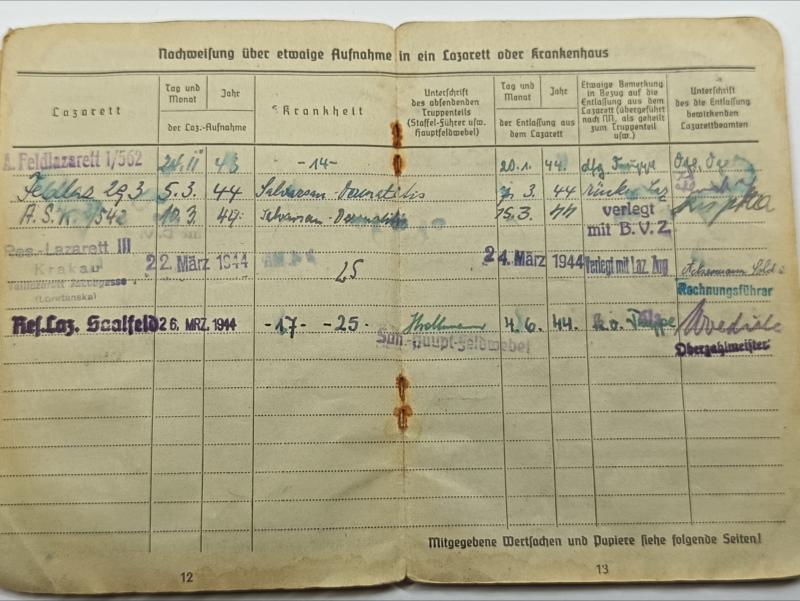 Nachweisung über etwaige Aufnahme in ein Lazarett oder Krankenhaus
Lazarett
Tag und Monat
Jahr
der Laz.-Aufnahme
Krankheit
Unterschrift des absendenden Truppenteils (Staffel-Führer usw. Hauptfeldwebel)
Tag und Monat
Jahr
der Entlassung aus dem Lazarett
Etwaige Bemerkung in Bezug auf die Entlassung aus dem Lazarett (übergeführt nach NN, als geheilt zum Truppenteil usw.)
Unterschrift des die Entlassung bewirkenden Lazarettbeamten
Feldlazarett 1/562 43 -14- 20.1. 44.
Feldlaz 293 5.3. 44 Salvarsan 3. 44
A.S.K. 1/542 10.3. 44 Salvarsan 15.3. 44 verlegt
mit B.V.Z.
Res.-Lazarett III
Krakau 22. März 1944 25 24. März 1944 Verlegt mit Laz. Zug
(Loretanska) Rechnungsführer
Res.Laz. Saalfeld 26. MRZ. 1944 -17- -25- 4.6. 44.
San.-Haupt-Feldwebel Oberzahlmeister
Mitgegebene Wertsachen und Papiere siehe folgende Seiten!
12
13